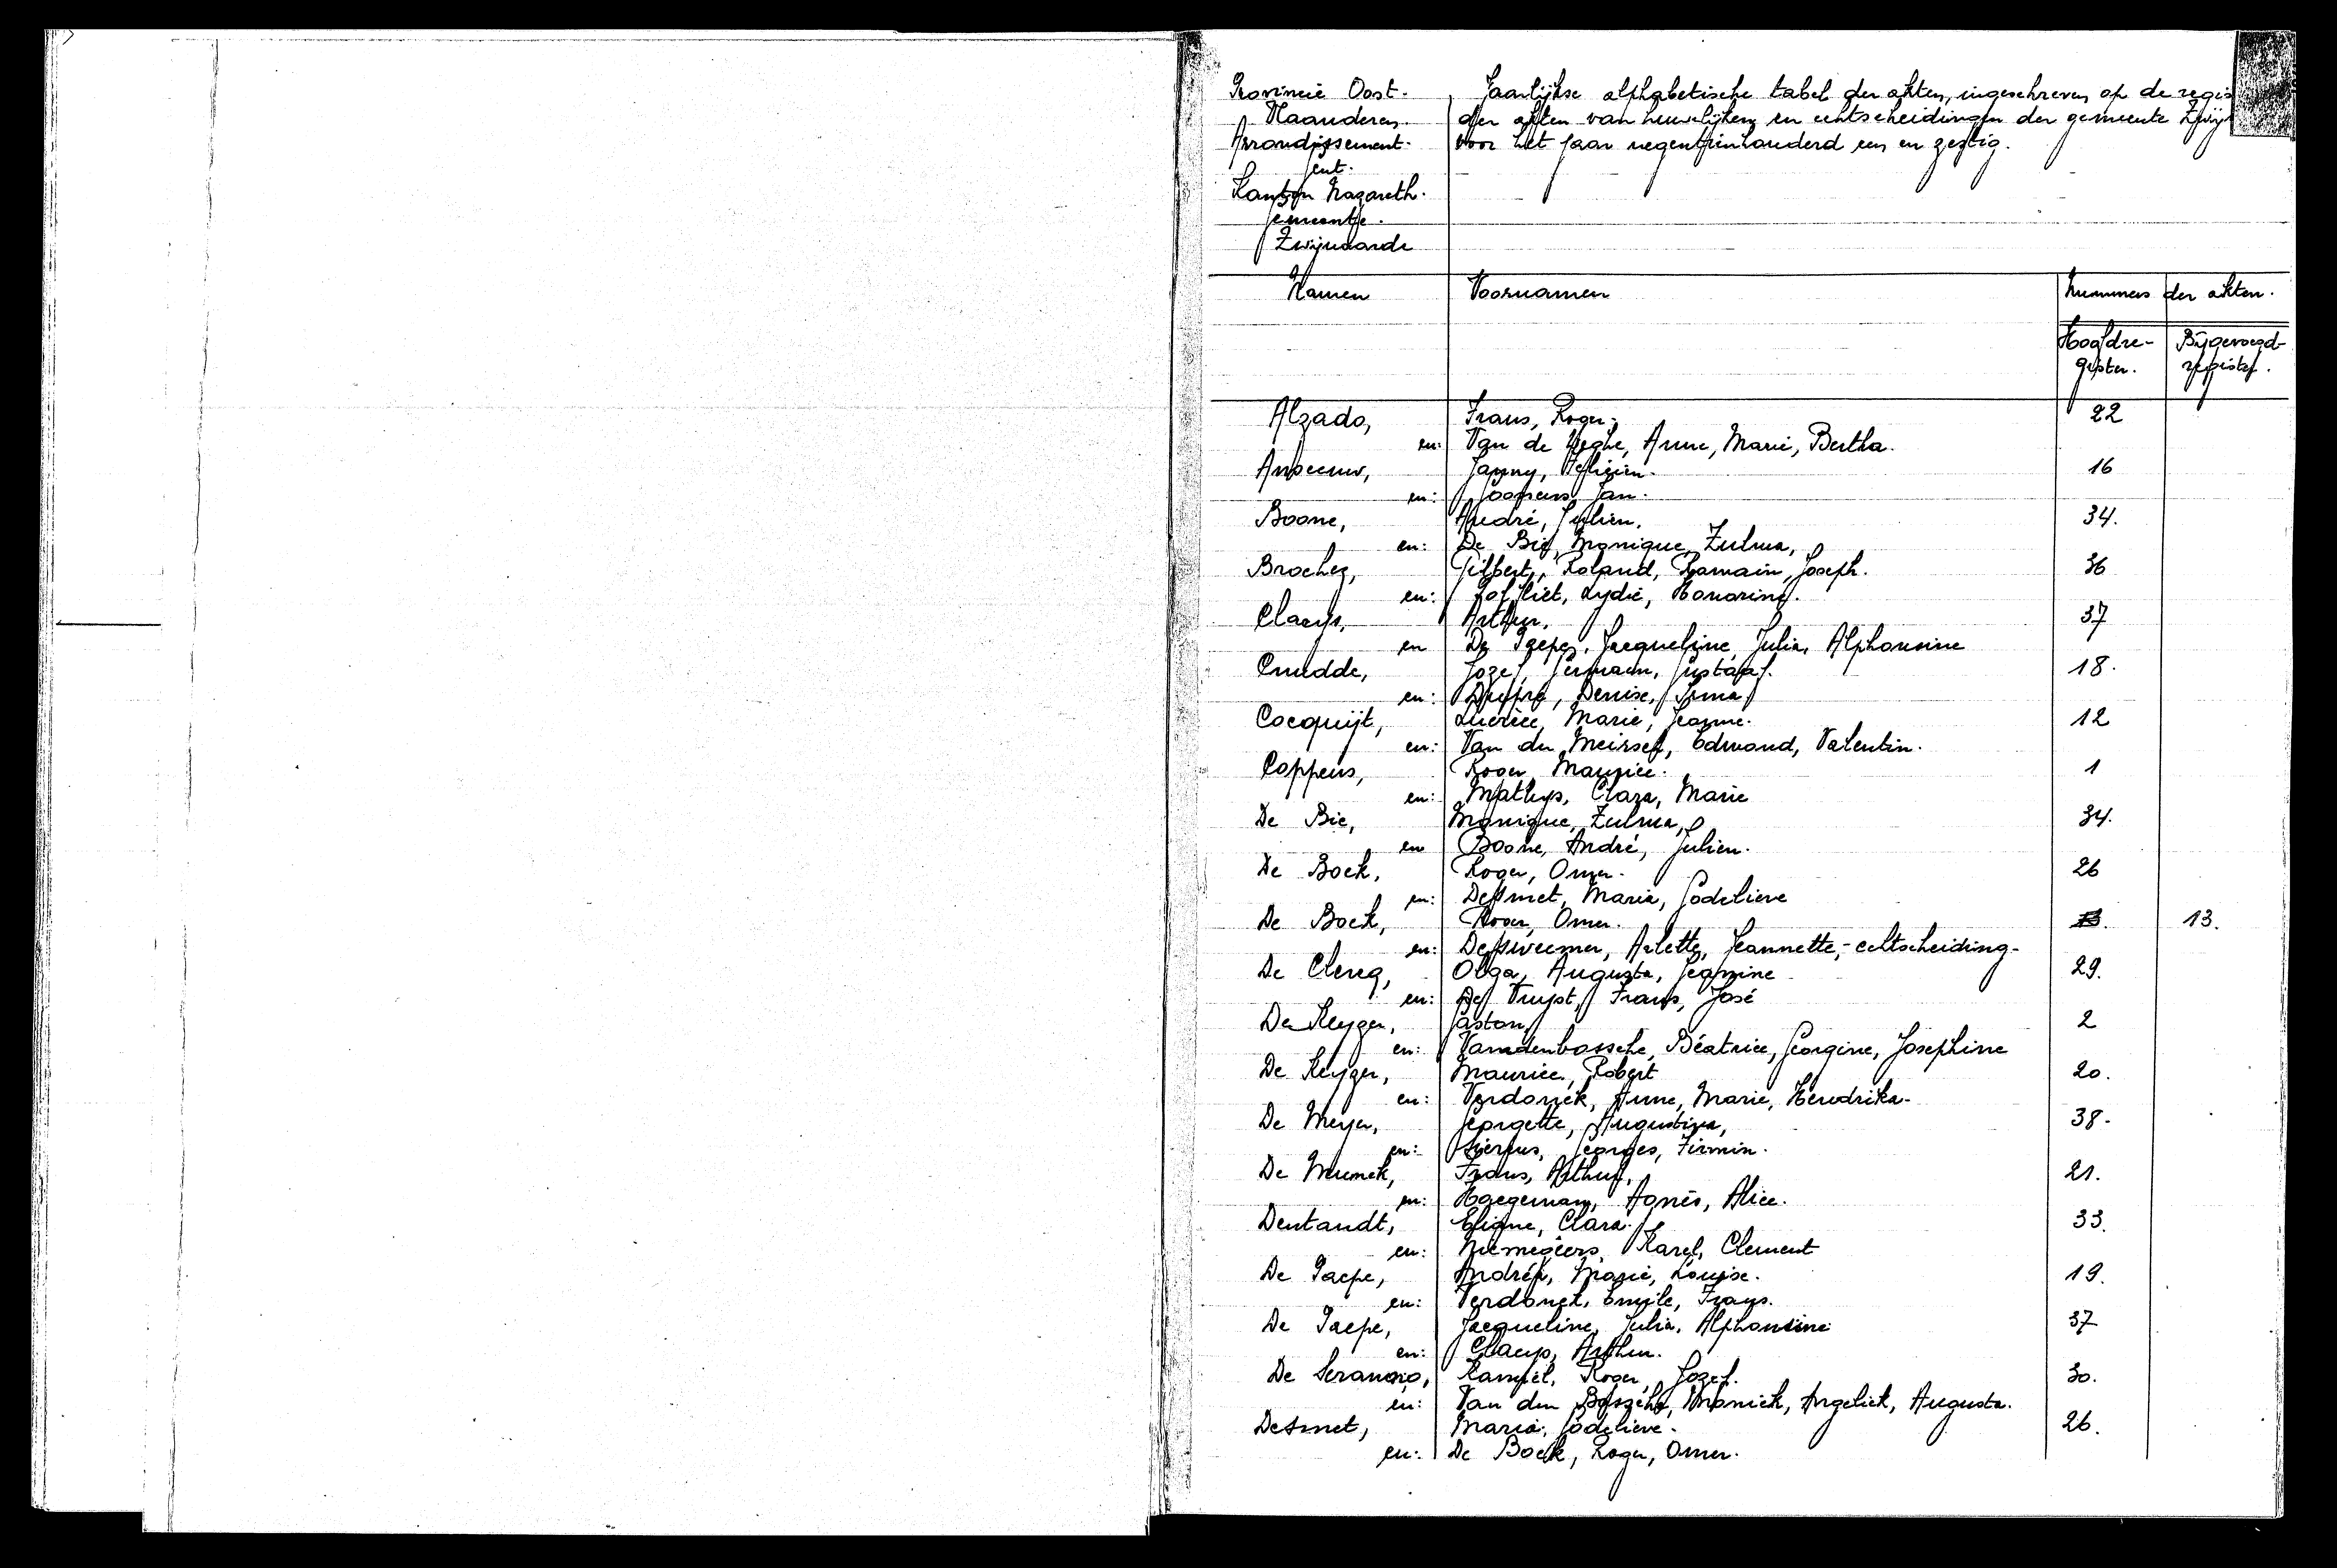 Provincie Oost-
Vlaanderen.
Arrondissement.
Gent.
Kanton Nazareth.
Gemeente.
Zwijnaarde
Jaarlijkse alphabetische tabel der akten, ingeschreven op de regis
der akten van huwelijken en echtscheidingen der gemeente Zwijn
voor het jaar negentienhonderd een en zestig.
Namen Voornamen Nummers der akten.
Hoofdre- Bijgevoegd
gister. register.
Alzado, Frans, Roger. 22
en: Van de Weghe, Anne, Marie, Bertha.
Anseeuw, 16
en: Goossens, Jan.
Boone, André, Julien. 34.
en: De Bie, Monique, Zulma,
Brochez, Gilbert, Roland, Romain, Joseph. 36
en: Lydie, Honorine.
Claeys, Arthur. 37
en De Paepe, Jacqueline, Julia, Alphonsine
Cnudde, Jozef, Germain, Gustaaf. 18.
en: Dupré, Denise, Irma
Cocquijt, Lucrèce, Marie, Jeanne. 12
en: Van der Meirsch, Edmond, Valentin.
Coppens, Roger, Maurice. 1
en: Mathys, Clara, Marie
De Bie, Monique, Zulma, 34.
en Boone, André, Julien.
De Bock, Roger, Omer. 26
en: Desmet, Maria, Godelieve
De Bock, Roger, Omer. 13.
en: Arlette, Jeannette,- echtscheiding-
De Clercq, Olga, Augusta, Jeannine 29.
en: De Vuyst, Frans, José
De Keyzer, Gaston, 2
en: Vandenbossche, Béatrice, Georgine, Josephine
De Keyzer, Maurice, Robert 20.
en: Verdonck, Anne, Marie, Hendrika-
De Meyer, Georgette, Augustina, 38.
en: Georges, Firmin.
De Munck, Frans, Arthur, 21.
en: Haegeman, Agnès, Alice.
Dentandt, Clara. 33.
en: Niemegeers, Karel, Clement
De Paepe, Andréa, Marie, Louise. 19.
en: Verdonck, Emile, Frans.
De Paepe, Jacqueline, Julia, Alphonsine 37
en: Claeys, Arthur.
De Seranno, Kamiel, Roger, Jozef. 30.
en: Van den Bossche, Moniek, Angeliek, Augusta.
Desmet, Maria, Godelieve. 26.
en: De Bock, Roger, Omer.